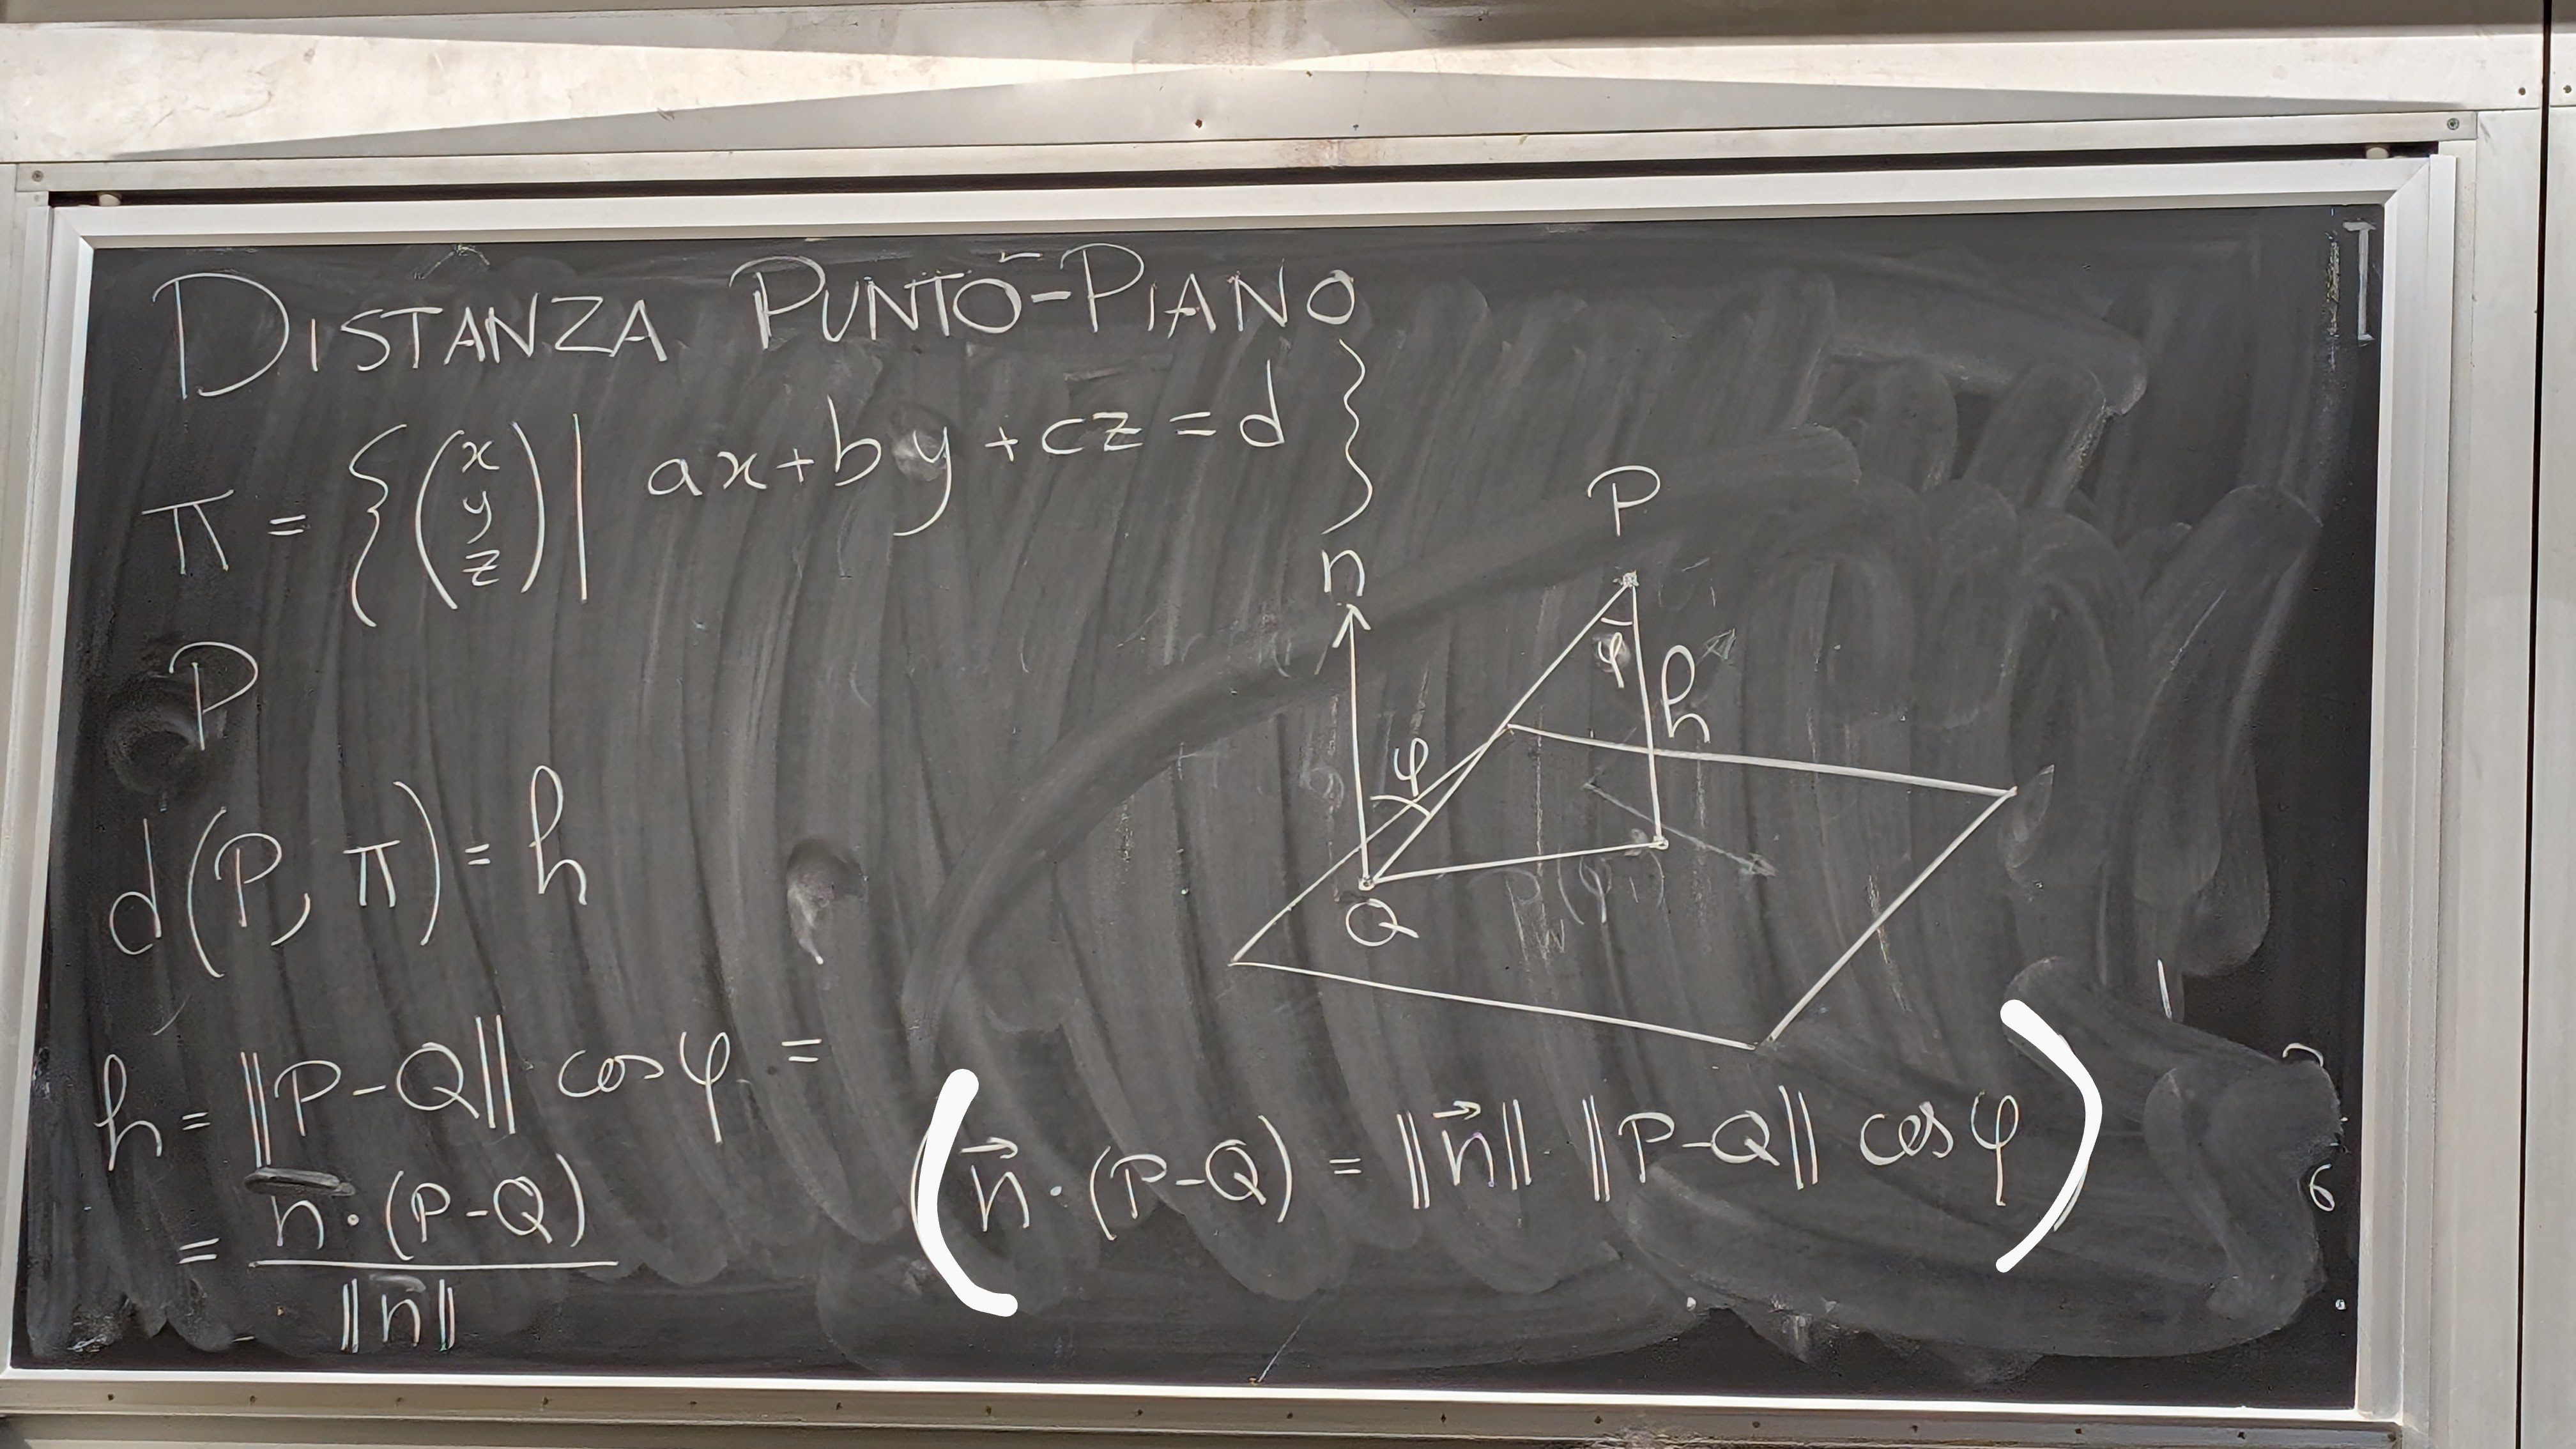 DISTANZA PUNTO-PIANO
π = { (x y z) | ax+by+cz=d }
P
d(P, π) = h
h = ||P-Q|| cos φ =
= n⃗·(P-Q) / ||n⃗||
(n⃗·(P-Q) = ||n⃗||·||P-Q|| cos φ)
n
P
φ
h
φ
Q